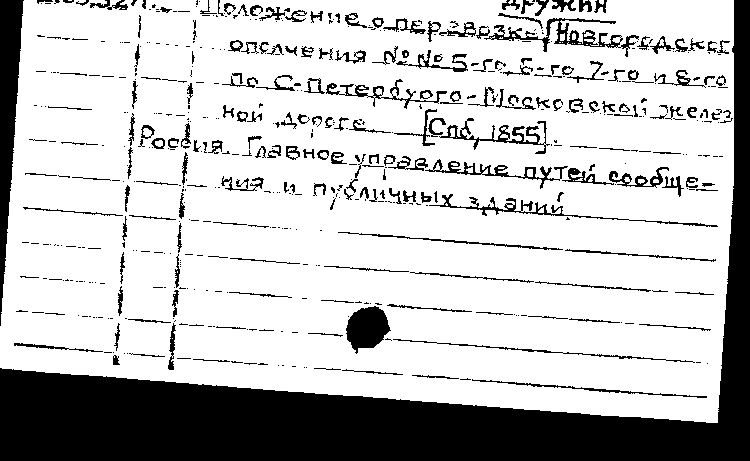 дружин
Положение о перевозке Новгородского
ополчения №№ 5-го, 6-го, 7-го и 8-го
по С-Петербурго-Московской желез
ной дороге [Спб, 1855].
Россия. Главное управление путей сообще-
ния и публичных зданий.